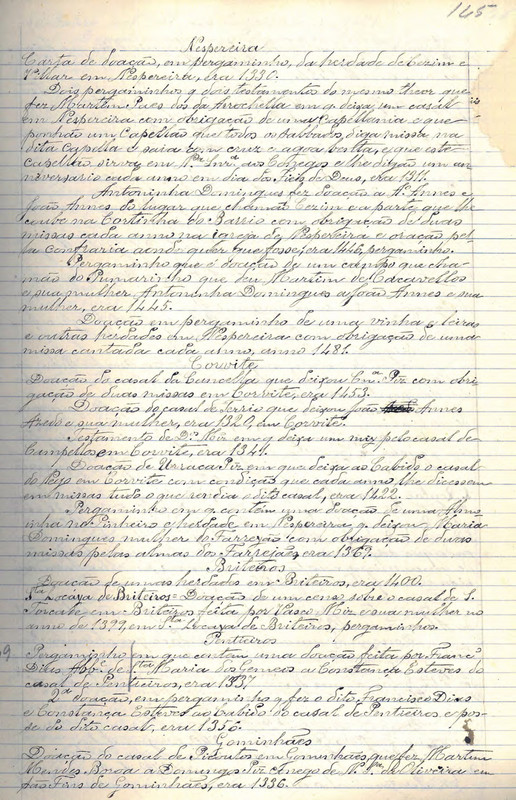 145
Nespereira
Carta de doação, em pergaminho, da herdade de Cozim e
Vilar em Nespereira, era 1330.
Dois pergaminhos q. dois testamentos do mesmo theor que
fez Martim Paes dos da Arrochella em q. deixa um casal
em Nespereira com obrigação de uma Capellania e que
ponhão um Capellão que todos os sabbados, diga missa na
dita Capella e saia com cruz e agoa benta, e que este
Capellão sirva em N.ª Snr.ª aos Conegos e lhe digão um an
niversario cada anno em dia dos Fieis de Deus, era
Antoninha Domingues fez doação a João Annes e
João Annes do lugar que chamão Cezim oa parte que lhe
coube na Cortinha do Barrio com obrigação de duas
missas cada anno na igreja de Nespereira e oração pe-
la Confraria aonde quer que fosse; era 1446, pergaminho.
Pergaminho que é doação de um campo que cha-
mão do Pumarinho que deu Martim de Cacavellos
e sua mulher, Antoninha Domingues a João Annes e sua
mulher, era 1445.
Doação em pergaminho de uma vinha e leiras
e outras herdades em Nespereira com obrigação de uma
missa cantada cada anno, anno 1481.
Corvite
Doação do casal da Cancella que deixou Piz com obri
gação de duas missas em Corvite, era 1453.
Doação do casal de que deixou João Annes
e sua mulher, era 1329, em Corvite.
Testamento de D.ª Mór em q. deixa um mrz pelo casal de
Campellos em Corvite, era 1347.
Doação de Urraca Piz em que deixa ao Cabido o casal
do Pégo em Corvite com condição que cada anno, lhe dicessem
em missas tudo o que rendia o dito casal, era 1422.
Pergaminho em q. contem uma doação de uma
no Pinheiro e herdade em Nespereira q. deixou Maria
Domingues mulher do Farrejão com obrigação de duas
missas pelas almas dos Farrejões, era 1369.
Briteiros
Doação de umas herdades em Briteiros, era 1400.
Sta Locaya de Briteiros = Doação de um censo sobre o casal de S.
Torcate em Briteiros feita por Vasco Miz e sua mulher no
anno de 1399, em Sta Locaya de Briteiros, pergaminho.
Pentieiros
Pergaminho em que contem uma doação feita por Franc.º
Dias Abb.e de Sta Maria dos Gemeos a Constança Esteves do
casal de Pentieiros, era 1337.
2.ª doação, em pergaminho q. fez o dito Francisco Dias
e Constança Esteves ao Cabido do casal de Pentieiros e pos-
se do dito casal, era 1350.
Gominhães
Doação do casal de em Gominhães, que fez Martim
Mendes a Domingos Piz Cónego de N. Sr.ª da Oliveira em
Gominhães, era 1336.